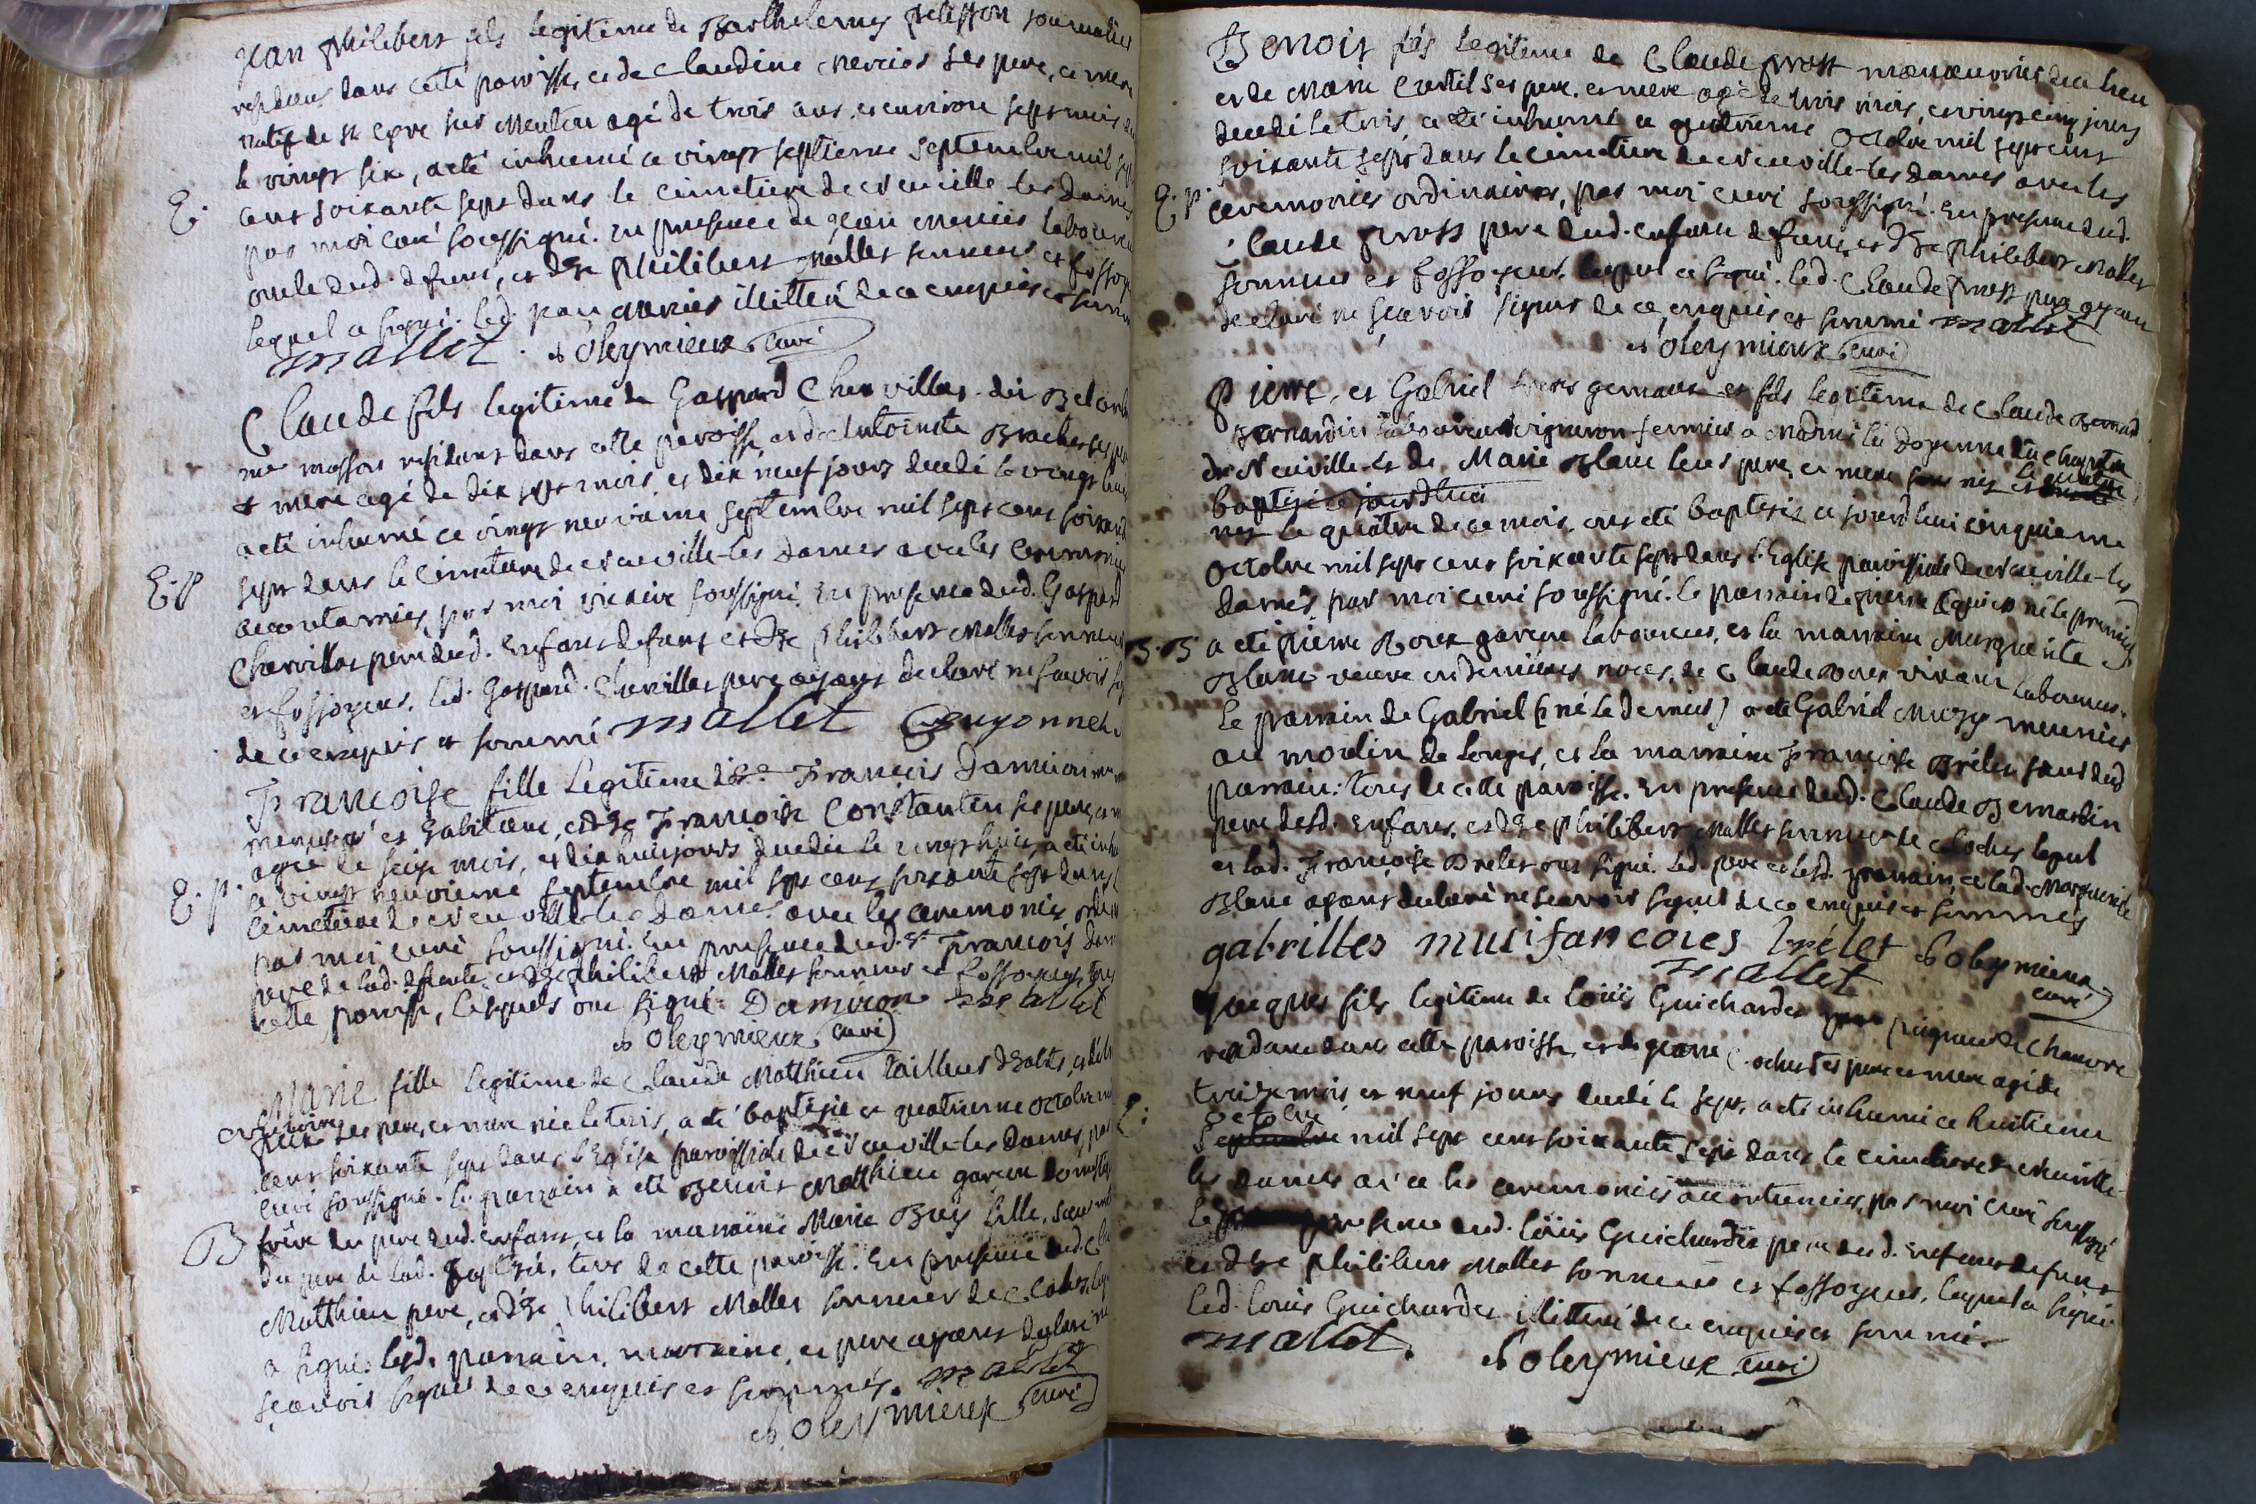 jean philibert fils legitime de Barthelemy pelisson journalier
residans dans cette paroisse, et de Claudine mercier ses pere, et mere
natif de st cyre sur Menton agé de trois ans, et environ sept mois
le vingt six, a eté inhumé ce vingt septieme septembre mil sept
E. cent soixante sept dans le cimetiere de Neuville-les Dames
par moi curé soussigné. en presence de jean mercier laboureur
oncle dud. defunt, et de philibert Mallet sonneur et fossoyeur
lequel a signé. led. jean mercier illitteré de ce enquis et sommé
mallet. Soleymieux curé
Claude fils legitime de Gaspard Chervillat dit
me masson residant dans cette paroisse, et d'Antoinette Brachet ses pere
et mere agé de dix sept mois, et dix neuf jours decedé le vingt huit
a eté inhumé ce vingt neuvieme septembre mil sept cent soixante
E. P sept dans le cimetiere de Neuville-les Dames avec les ceremonies
accoutumées, par moi vicaire soussigné. En presence dud. Gaspard
Chervillat pere dud. enfant defunt et de philibert Mallet sonneur
et fossoyeur. led. Gaspard Chervillat pere ayant declaré ne sçavoir
de ce enquis et sommé mallet Guyonnet
Francoise fille legitime de sr Francois Damiron me
et habitant, et de Francoise Constantin ses pere, et
agée de seize mois, et dix huit jours decedée le vingt huit, a eté
E. p. ce vingt neuvieme septembre mil sept cent soixante sept dans le
cimetiere de Neuville-les Dames avec les ceremonies
par moi curé soussigné. En presence dud. sr Francois
pere de lad. defunte, et de philibert Mallet sonneur et fossoyeur, tous
cette paroisse, lesquels ont signé. Damiron mallet
Soleymieux curé
Marie fille legitime de Claude Matthieu tailleur d'habits, et
ses pere, et mere née le trois, a eté baptisée ce quatrieme octobre mil
cent soixante sept dans l'Eglise paroissiale de Neuville-les Dames, par
curé soussigné. le parrain a eté Benoit Matthieu garcon
B frere du pere dud. enfant, et la marraine Marie Buy fille, soeur
du pere de lad. baptisée, tous de cette paroisse. En presence dud. Claude
Matthieu pere, et de philibert Mallet sonneur de cloches, lequel
a signé. lesd. parrain, marraine, et pere ayants declaré ne
sçavoir signer de ce enquis et sommés. mallet
Soleymieux curé
Benoit fils legitime de Claude prost manoeuvrier de ce lieu
et de Marie ses pere et mere agé de trois mois, et vingt cinq jours
decedé le trois, a eté inhumé ce quatrieme octobre mil sept cent
soixante sept dans le cimetiere de Neuville-les Dames avec les
E. p. ceremonies ordinaires, par moi curé soussigné. En presence dud.
Claude prost pere dud. enfant defunt, et de philibert Mallet
sonneur et fossoyeur, lequel a signé. led. Claude prost pere ayant
declaré ne sçavoir signer de ce enquis et sommé mallet
Soleymieux curé
Pierre, et Gabriel freres gemeaux et fils legitime de Claude Bernard
Bernardin laboureur vigneron fermier a Madme la doyenne du chapitre
de Neuville et de Marie Blanc leurs pere, et mere
baptisé ce jourd'hui
nés le quatre de ce mois, ont eté baptisés ce jourd'hui cinquieme
octobre mil sept cent soixante sept dans l'Eglise paroissiale de Neuville-les
dames par moi curé soussigné. le parrain de pierre né le premier
B. B a eté pierre Roux garcon laboureur, et la marraine Marguerite
Blanc veuve en dernieres noces de Claude vivant laboureur.
Le parrain de Gabriel (né le dernier) a eté Gabriel meunier
au moulin de longes, et la marraine Francoise Brelet dud
parrain: tous de cette paroisse. En presence dud. Claude Bernardin
pere desd. enfans, et de philibert Mallet sonneur de cloches lequel
et lad. Francoise Brelet ont signé. led. pere et led. parrain, et lad. Marguerite
Blanc ayants declaré ne sçavoir signer de ce enquis et sommés
gabrilles mucifancoies brelet Soleymieux
mallet curé
Jacques fils legitime de loüis Guichardet peigneur de chanvre
residant dans cette paroisse, et de jeanne ses pere et mere agé de
treize mois et neuf jours decedé le sept, a eté inhumé ce huitieme
octobre
Septembre mil sept cent soixante sept dans le cimetiere de Neuville-
les dames avec les ceremonies accoutumées, par moi curé soussigné
presence dud. loüis Guichardet pere dud. enfant defunt
et de philibert Mallet sonneur et fossoyeur, lequel a signé
led. louis Guichardet illitteré de ce enquis et sommé.
mallet. Soleymieux curé